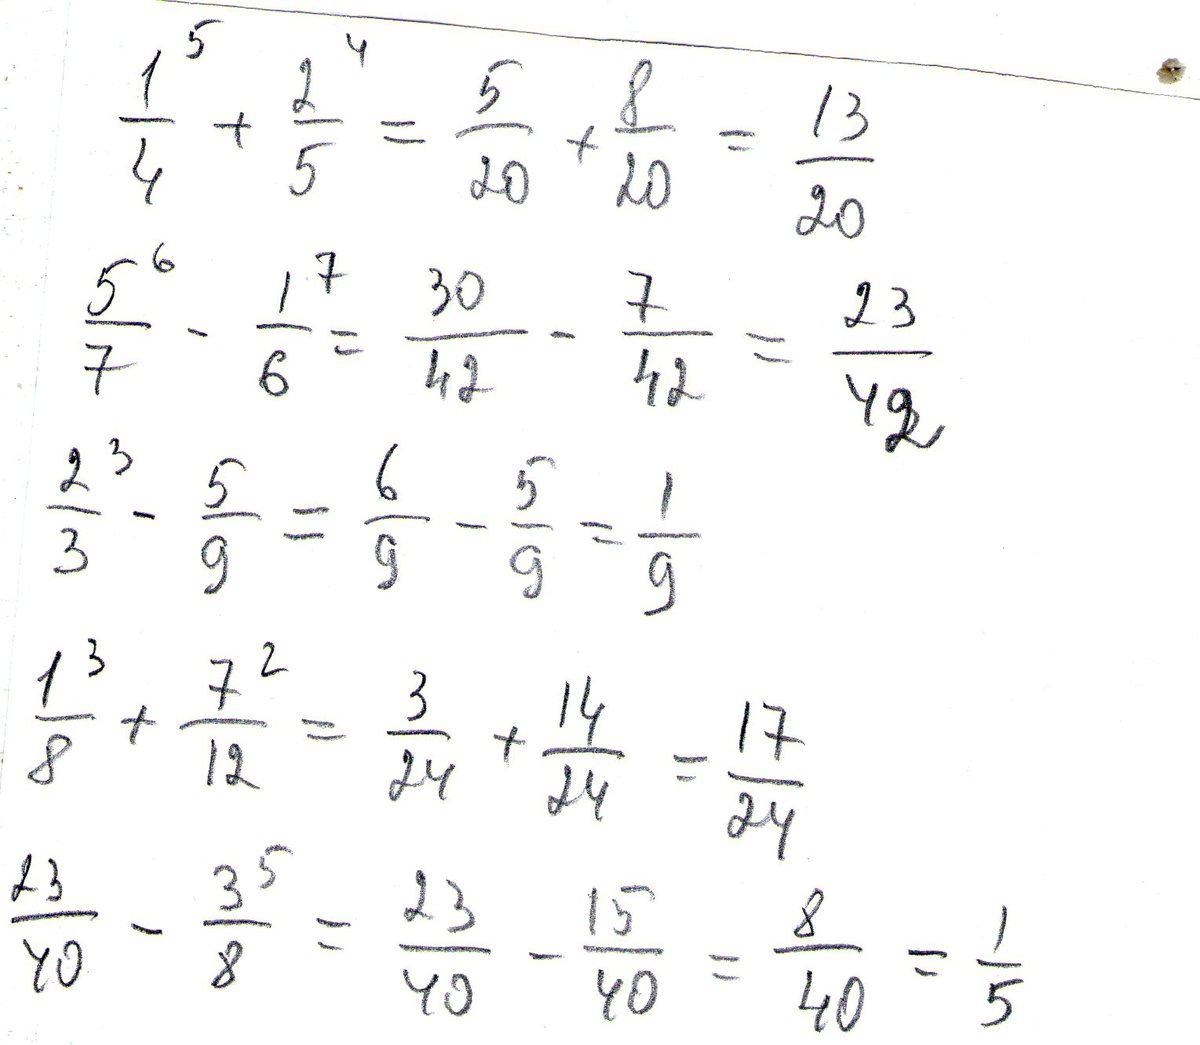 1/4 ⁵ + 2/5 ⁴ = 5/20 + 8/20 = 13/20
5/7 ⁶ - 1/6 ⁷ = 30/42 - 7/42 = 23/42
2/3 ³ - 5/9 = 6/9 - 5/9 = 1/9
1/8 ³ + 7/12 ² = 3/24 + 14/24 = 17/24
23/40 - 3/8 ⁵ = 23/40 - 15/40 = 8/40 = 1/5